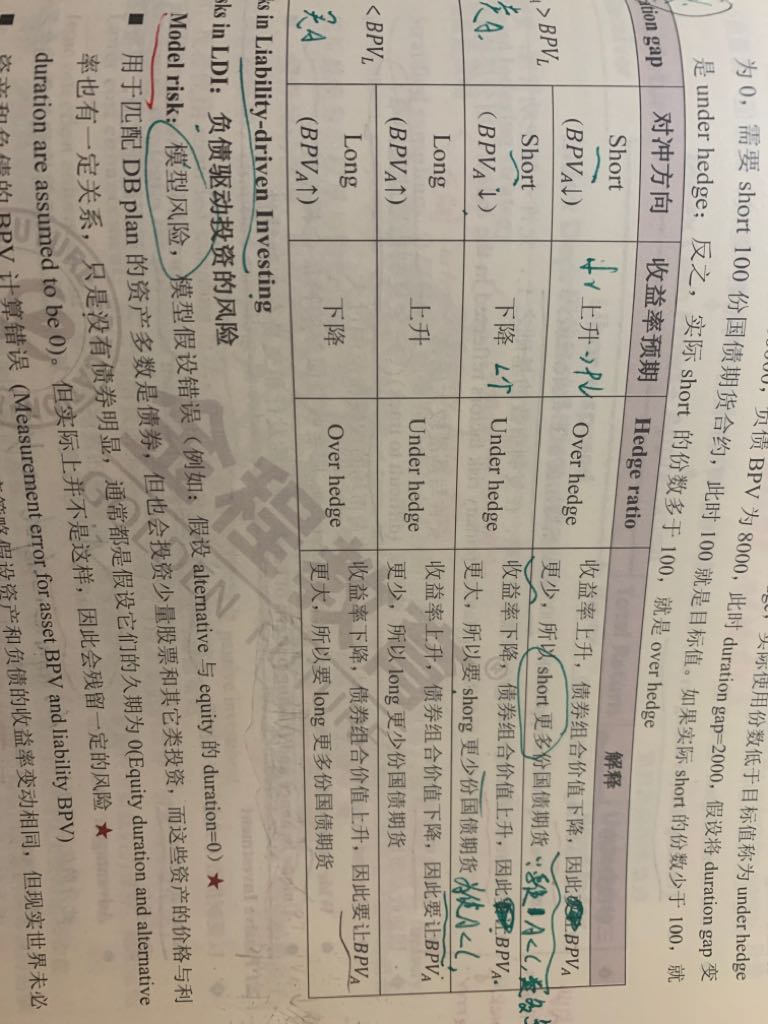 负债 BPV 为 8000, 此时 duration gap=2000, 假设将 duration gap 变
实际使用份数低于目标值称为 under hedge
为 0, 需要 short 100 份国债期货合约, 此时 100 就是目标值。如果实际 short 的份数少于 100, 就
是 under hedge; 反之, 实际 short 的份数多于 100, 就是 over hedge
tion gap 对冲方向 收益率预期 Hedge ratio 解释
> BPV_L
Short (BPV_A↓) 上升 Over hedge 收益率上升, 债券组合价值下降, 因此 BPV_A
更少, 所以 short 更多份国债期货
Short (BPV_A↓) 下降 Under hedge 收益率下降, 债券组合价值上升, 因此 BPV_A
更大, 所以要 shorg 更少份国债期货
< BPV_L
Long (BPV_A↑) 上升 Under hedge 收益率上升, 债券组合价值下降, 因此要让BPV_A
更少, 所以 long 更少份国债期货
Long (BPV_A↑) 下降 Over hedge 收益率下降, 债券组合价值上升, 因此要让BPV_A
更大, 所以要 long 更多份国债期货
ks in Liability-driven Investing
sks in LDI: 负债驱动投资的风险
Model risk: 模型风险, 模型假设错误 (例如: 假设 alternative 与 equity 的 duration=0) ★
■ 用于匹配 DB plan 的资产多数是债券, 但也会投资少量股票和其它类投资, 而这些资产的价格与利
率也有一定关系, 只是没有债券明显, 通常都是假设它们的久期为 0(Equity duration and alternative
duration are assumed to be 0)。但实际上并不是这样, 因此会残留一定的风险 ★
■ 资产和负债的 BPV 计算错误 (Measurement error for asset BPV and liability BPV)
策略假设资产和负债的收益率变动相同, 但现实世界未必